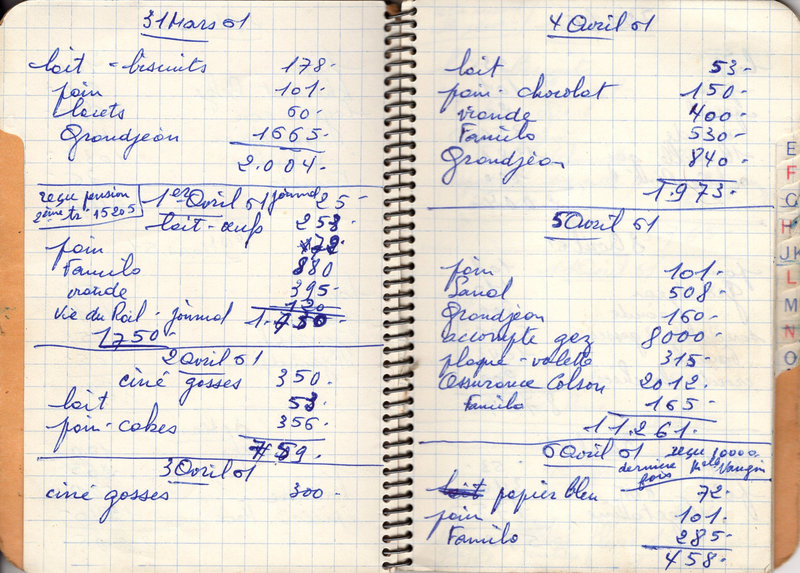 31 Mars 61
lait - biscuits 178-
pain 101-
lacets 60-
Grandjean 1665-
2.004.
reçu pension
2ème tr. 15205
1er Avril 61 journal 25-
lait - œufs 253-
pain 172-
Familo 880
viande 395-
Vie du Rail - journal 120
1.450-
1750-
2 Avril 61
ciné gosses 350.
lait 53-
pain - cakes 356-
759-
3 Avril 61
ciné gosses 300-
4 Avril 61
lait 53-
pain - chocolat 150-
viande 400-
Familo 530-
Grandjean 840-
1.973-
5 Avril 61
pain 101-
Sanal 508-
Grandjean 160-
accompte gaz 8000-
plaque - valette 315-
Assurance Colson 2012.
Familo 165-
11.261.
6 Avril 61
reçu 10000
dernière fois
papier bleu 72-
pain 101-
Familo 285-
458-
E
F
G
H
JK
L
M
N
O